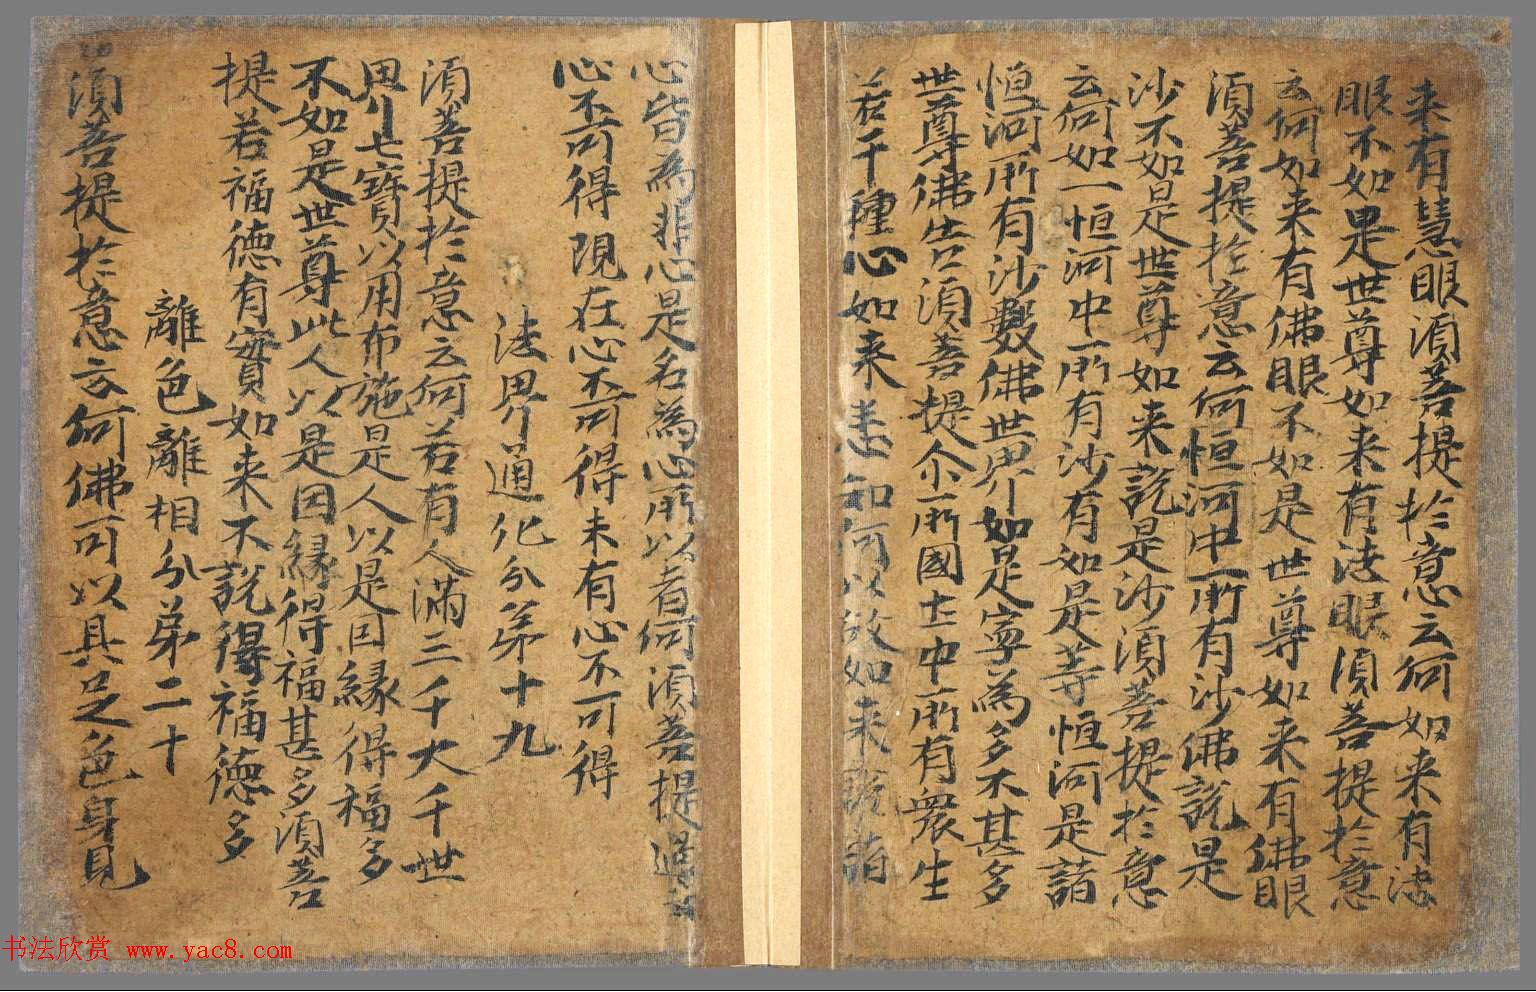 来有慧眼須菩提扵意云何如来有法
眼不如是世尊如来有法眼須菩提扵意
云何如来有佛眼不如是世尊如来有佛眼
須菩提扵意云何恒河中所有沙佛說是
沙不如是世尊如来說是沙須菩提扵意
云何如一恒河中所有沙有如是等恒河是諸
恒河所有沙數佛世界如是寧為多不甚多
世尊佛告須菩提尒所國土中所有衆生
若干種心如来悉知何以故如来說諸
心皆為非心是名為心所以者何須菩提過去
心不可得現在心不可得未有心不可得
法界通化分第十九
須菩提扵意云何若有人滿三千大千世
界七寳以用布施是人以是因緣得福多
不如是世尊此人以是因緣得福甚多須菩
提若福德有實如来不說得福德多
離色離相分第二十
須菩提扵意云何佛可以具足色身見
书法欣赏 www.yac8.com